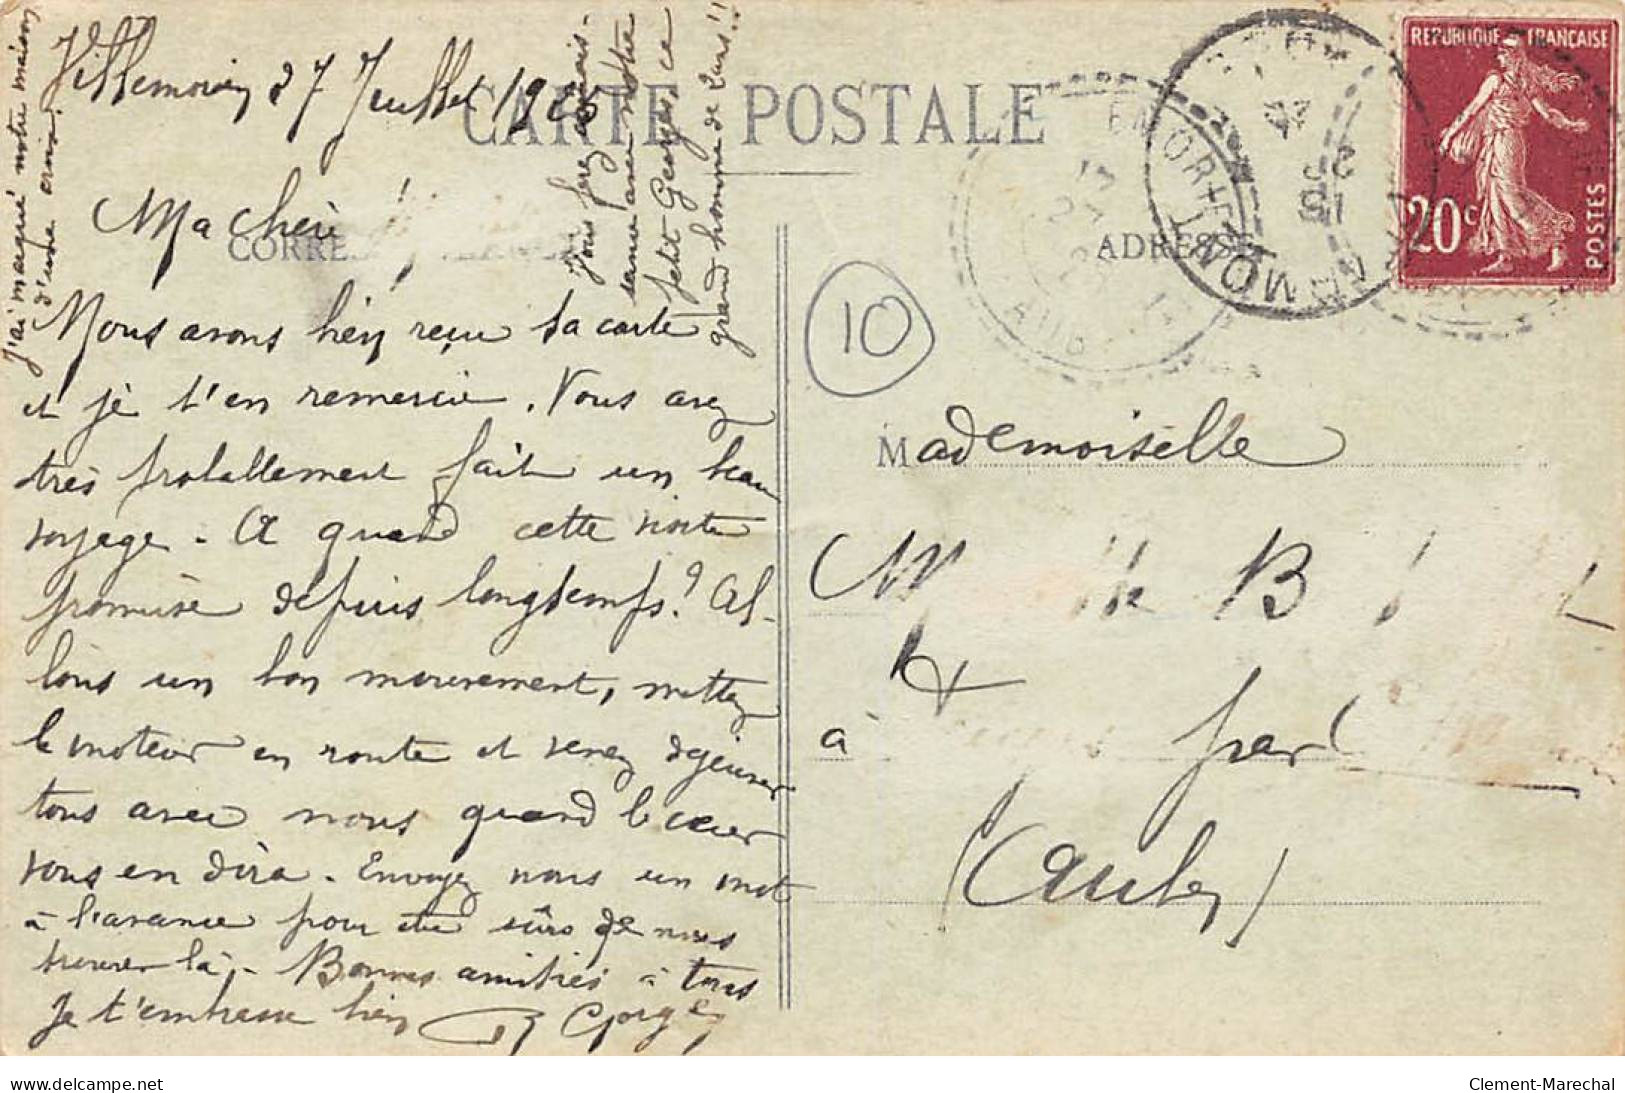 J'ai marqué notre maison
d'une croix.
Villemoiron 27 Juillet 1925
CARTE POSTALE
Ma Chérie !
CORRE
Vous ferez connais-
sance avec notre
petit Georges, ce
grand homme de 2 ans !!
Nous avons bien reçu ta carte
et je t'en remercie. Vous avez
très probablement fait un beau
voyage. A quand cette visite
promise depuis longtemps ? Al-
lons un bon mouvement, mettez
le moteur en route et venez déjeuner
tous avec nous quand le cœur
vous en dira. Envoyez nous un mot
à l'avance pour être sûrs de nous
trouver là. - Bonnes amitiés à tous
Je t'embrasse bien
ADRESSE
10
REPUBLIQUE FRANÇAISE
20c
POSTES
EN OTHE
AUBE
Mademoiselle
M B
à par
(Aube)
delcampe.net
Clement-Marechal